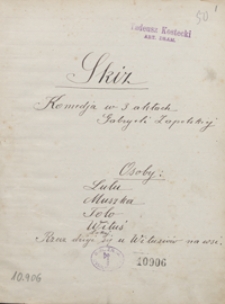 50
Tadeusz Kostecki
ART. DRAM.
Skiz
Komedja w 3 aktach
Gabryeli Zapolskiej
Osoby:
Lulu
Muszka
Tolo
Wituś
Rzecz dzieje się u Witusiów na wsi.
10906
10.906